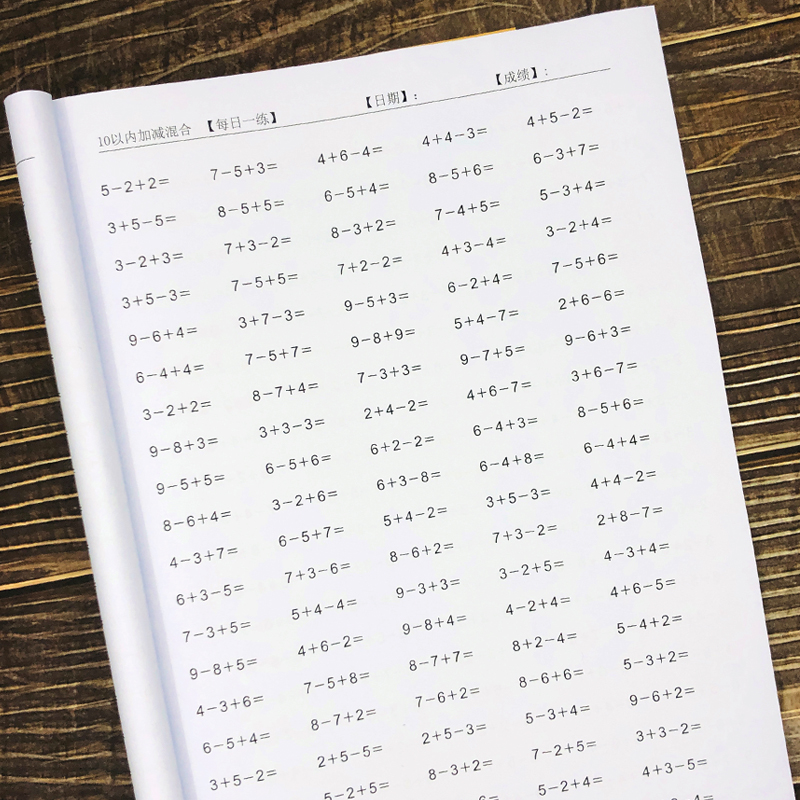 10以内加减混合 【每日一练】 【日期】： 【成绩】：
5－2＋2＝ 7－5＋3＝ 4＋6－4＝ 4＋4－3＝ 4＋5－2＝
3＋5－5＝ 8－5＋5＝ 6－5＋4＝ 8－5＋6＝ 6－3＋7＝
3－2＋3＝ 7＋3－2＝ 8－3＋2＝ 7－4＋5＝ 5－3＋4＝
3＋5－3＝ 7－5＋5＝ 7＋2－2＝ 4＋3－4＝ 3－2＋4＝
9－6＋4＝ 3＋7－3＝ 9－5＋3＝ 6－2＋4＝ 7－5＋6＝
6－4＋4＝ 7－5＋7＝ 9－8＋9＝ 5＋4－7＝ 2＋6－6＝
3－2＋2＝ 8－7＋4＝ 7－3＋3＝ 9－7＋5＝ 9－6＋3＝
9－8＋3＝ 3＋3－3＝ 2＋4－2＝ 4＋6－7＝ 3＋6－7＝
9－5＋5＝ 6－5＋6＝ 6＋2－2＝ 6－4＋3＝ 8－5＋6＝
8－6＋4＝ 3－2＋6＝ 6＋3－8＝ 6－4＋8＝ 6－4＋4＝
4－3＋7＝ 6－5＋7＝ 5＋4－2＝ 3＋5－3＝ 4＋4－2＝
6＋3－5＝ 7＋3－6＝ 8－6＋2＝ 7＋3－2＝ 2＋8－7＝
7－3＋5＝ 5＋4－4＝ 9－3＋3＝ 3－2＋5＝ 4－3＋4＝
9－8＋5＝ 4＋6－2＝ 9－8＋4＝ 4－2＋4＝ 4＋6－5＝
4－3＋6＝ 7－5＋8＝ 8－7＋7＝ 8＋2－4＝ 5－4＋2＝
6－5＋4＝ 8－7＋2＝ 7－6＋2＝ 8－6＋6＝ 5－3＋2＝
3＋5－2＝ 2＋5－5＝ 2＋5－3＝ 5－3＋4＝ 9－6＋2＝
5－2＋5＝ 8－3＋2＝ 7－2＋5＝ 3＋3－2＝
5－2＋4＝ 4＋3－5＝